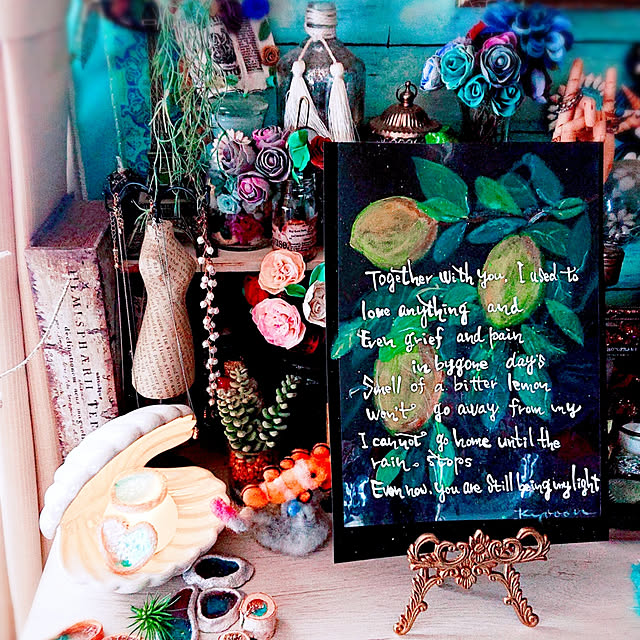 Together with you. I used to
love anything and
Even grief and pain
in bygone days
Smell of a bitter lemon
won't go away from my
I cannot go home until the
rain. stops
Even now. you are still being my light
HEMISPHARII TER